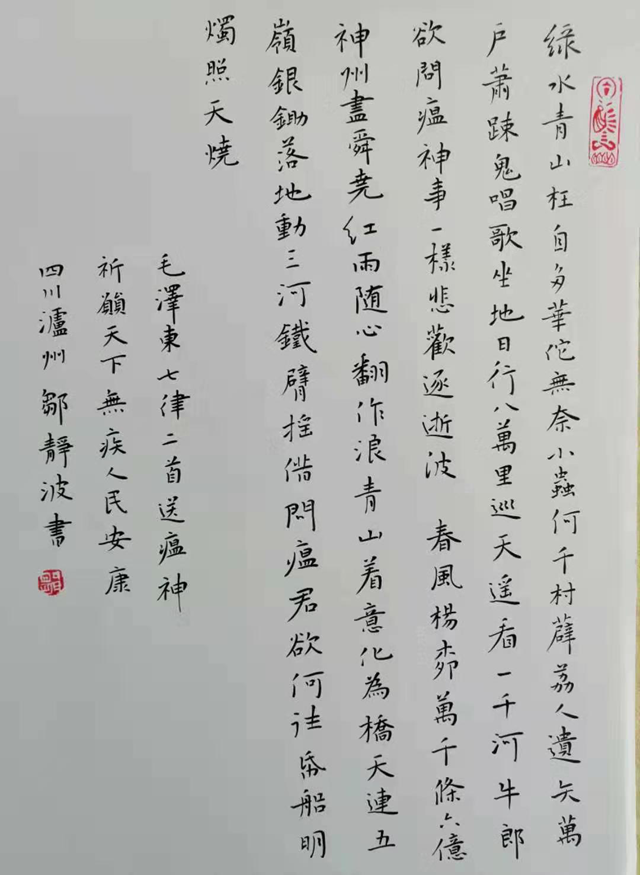 綠水青山枉自多華佗無奈小蟲何千村薜荔人遺矢萬
戶蕭踈鬼唱歌坐地日行八萬里巡天遙看一千河牛郎
欲問瘟神事一樣悲歡逐逝波 春風楊柳萬千條六億
神州盡舜堯紅雨随心翻作浪青山着意化為橋天連五
嶺銀鋤落地動三河鐵臂搖借問瘟君欲何往帋船明
燭照天燒
毛澤東七律二首送瘟神
祈願天下無疾人民安康
四川瀘州鄒靜波書